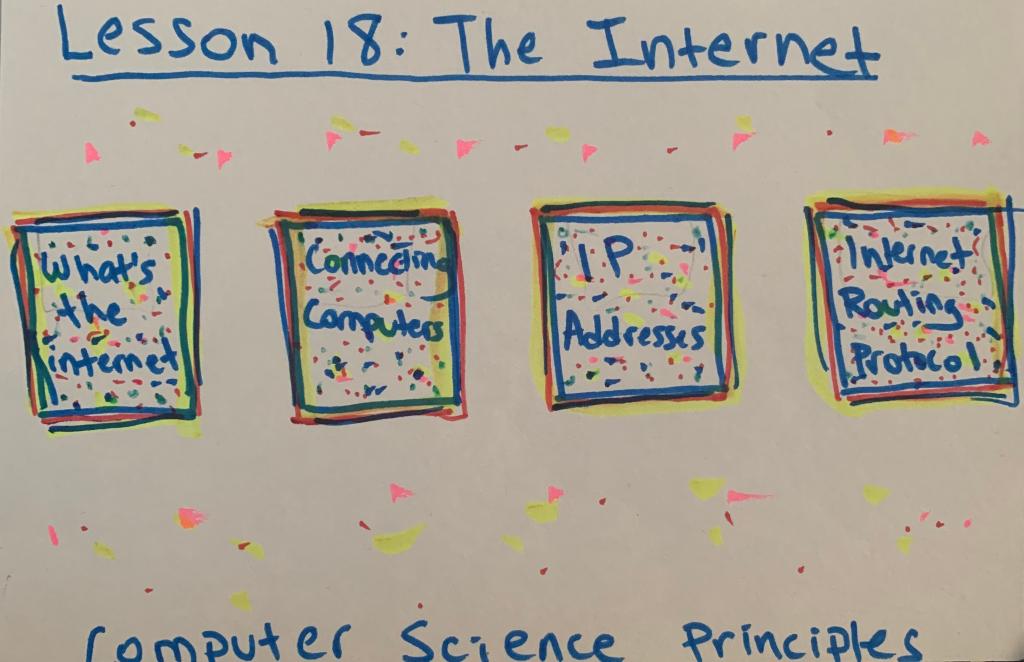 Lesson 18: The Internet
What's
the
internet
Connecting
Computers
IP
Addresses
Internet
Routing
Protocol
Computer Science Principles